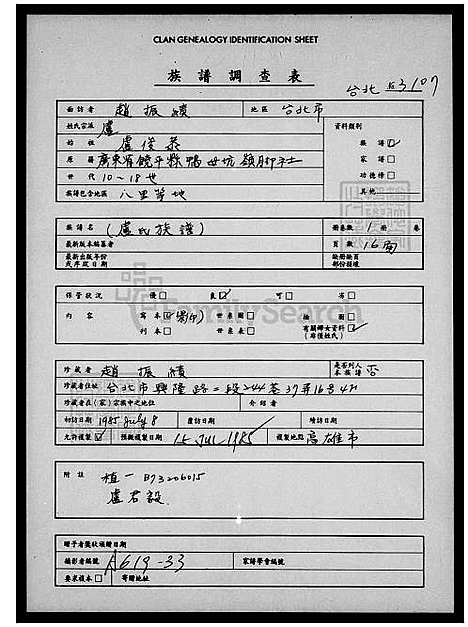 CLAN GENEALOGY IDENTIFICATION SHEET
族譜調查表
台北 3107
面訪者 趙振績 地區 台北市
姓氏宗派 盧 資料類別
始祖 盧俊恭 族譜☑
原籍 廣東省饒平縣鴨母坑嶺脚社 家譜□
世代 10~18世 功德榜□
族譜包含地區 八里等地 其他
族譜名 (盧氏族譜) 冊卷數 1冊 卷
最新版本編纂者 頁數 16面
最新出版年份或序跋日期 缺冊缺頁部份損壞
保管狀況 優□ 良☑ 可□ 劣□
FamilySearch
內容 寫本☑ 世系圖□ 繪圖□
刊本□ 世系表□ 有關婦女資料☑(非僅姓氏)
珍藏者 趙振績 是否列入本族譜 否
珍藏者住址 台北市興隆路二段244巷37弄16号4F
珍藏者在(家)宗族中之地位 介紹者
初訪日期 1985 July 8 重訪日期 續訪日期
允許複製☑ 預擬複製日期 15 Jul 1985 複製地點 高雄市
附註 植一 B73206015
盧君毅
贈予者獎狀頒贈日期
攝影者編號 A619-33 家譜學會編號
要求複本□ 寄贈地址